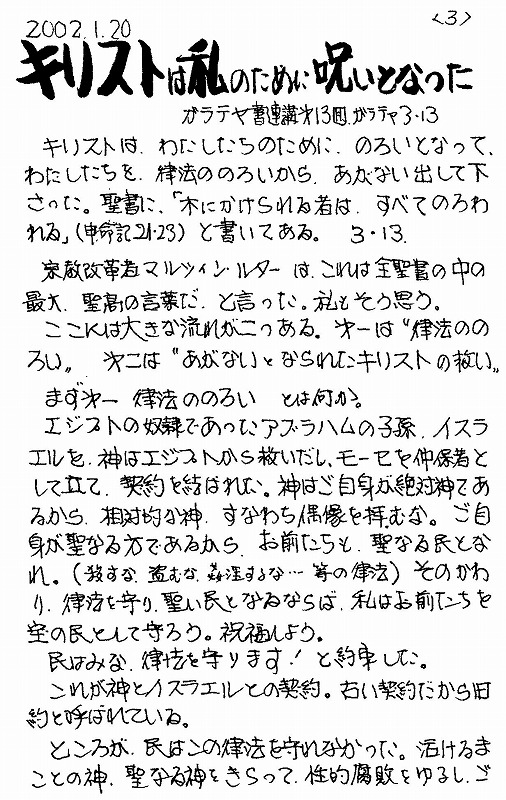 2002.1.20 <3>
キリストは私のために呪いとなった
ガラテヤ書連講才13回 ガラテヤ3・13
キリストは、わたしたちのために、のろいとなって、
わたしたちを、律法ののろいから、あがない出して下
さった。聖書に、「木にかけられる者は、すべてのろわ
れる」(申命記21・23) と書いてある。 3・13.
宗教改革者マルツィン・ルターは、これは全聖書の中の
最大、聖高の言葉だ、と言った。私もそう思う。
ここには大きな流れが二つある。才一は“律法のの
ろい〟 才二は“あがないとなられたキリストの救い〟
まず才一 律法ののろい とは何か。
エジプトの奴隷であったアブラハムの子孫、イスラ
エルを、神はエジプトから救いだし、モーセを仲保者と
して立て、契約を結ばれた。神はご自身が絶対神であ
るから、相対的な神、すなわち偶像を拝むな。ご自
身が聖なる方であるから、お前たちも、聖なる民とな
れ。(殺すな、盗むな、姦淫するな… 等の律法) そのかわ
り、律法を守り、聖い民となるならば、私はお前たちを
宝の民として守ろう。祝福しよう。
民はみな、律法を守ります! と約束した。
これが神とイスラエルとの契約。古い契約だから旧
約と呼ばれている。
ところが、民はこの律法を守れなかった。活けるま
ことの神、聖なる神をきらって、性的腐敗をゆるし、ご